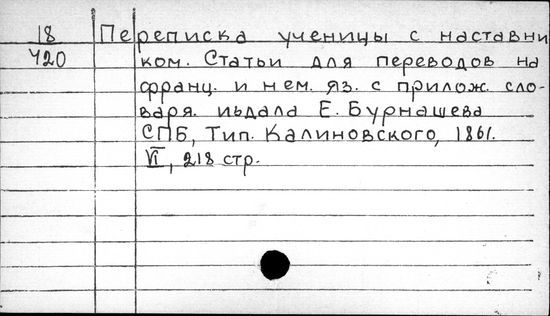 18 Переписка ученицы с наставни
420 ком. Статьи для переводов на
франц. и нем. яз. с прилож. сло-
варя. издала Е. Бурнашева
СПБ, Тип. Калиновского, 1861.
VI, 218 стр.